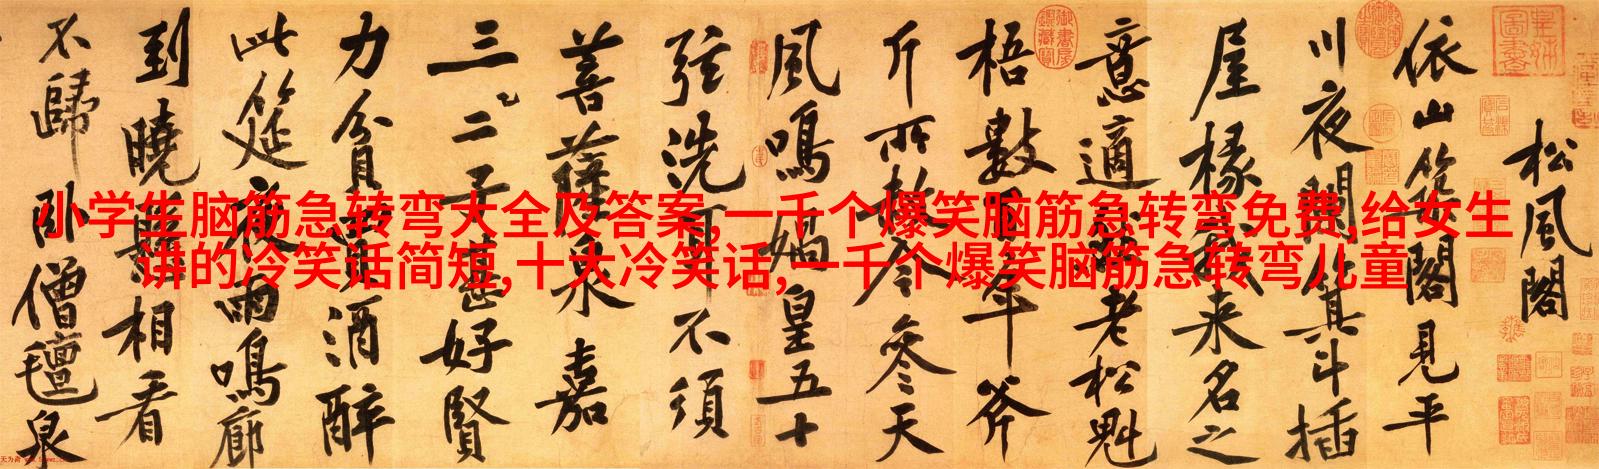 松風閣
依山築閣見平
川夜闌箕斗插
屋椽我来名之
意適然老松魁
梧數百年斧
斤所赦今參天
風鳴媧皇五十
弦洗耳不須
菩薩泉嘉
三二子甚好賢
力貧買酒醉
此筵夜雨鳴廊
到曉懸相看
不歸卧僧氊泉
小学生脑筋急转弯大全及答案,一千个爆笑脑筋急转弯免费,给女生
讲的冷笑话简短,十大冷笑话,一千个爆笑脑筋急转弯儿童